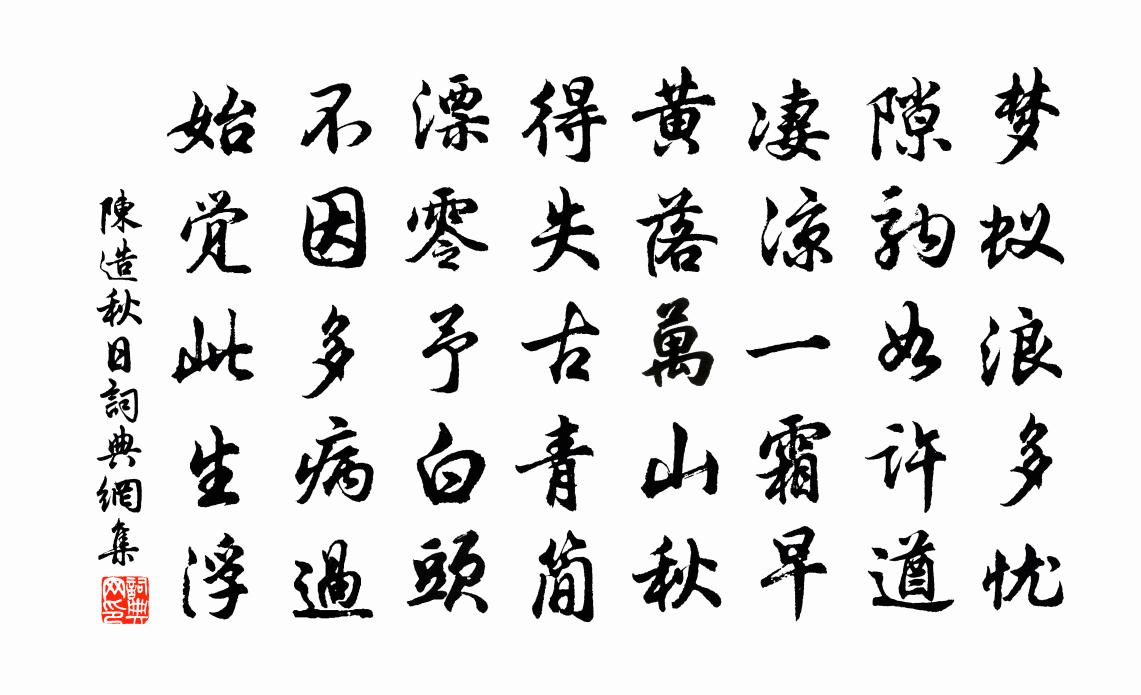 梦蚁浪多忧
隙駒如许遒
凄凉一霜早
黄落萬山秋
得失古青简
漂零予白頭
不因多病過
始觉此生浮
陳造秋日詞典網集
詞典网印